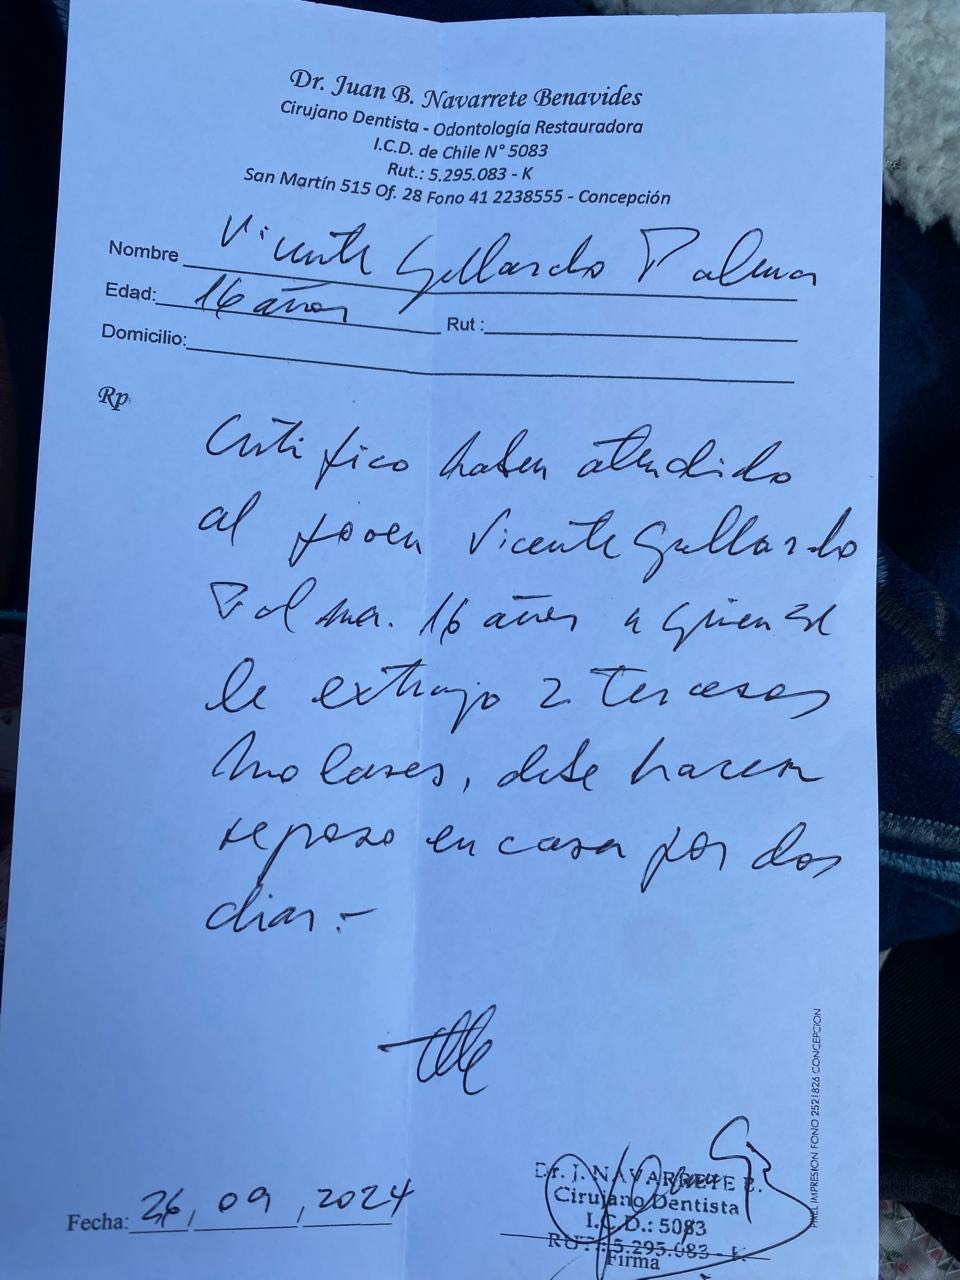 Dr. Juan B. Navarrete Benavides
Cirujano Dentista - Odontología Restauradora
I.C.D. de Chile N° 5083
Rut.: 5.295.083 - K
San Martín 515 Of. 28 Fono 41 2238555 - Concepción
Nombre Vicente Gallardo Palma
Edad: 16 años Rut :
Domicilio:
Rp
Certifico haber atendido
al joven Vicente Gallardo
Palma. 16 años a quien se
le extrajo 2 terceros
molares, debe hacer
reposo en casa por dos
dias.-
Fecha: 26, 09, 2024
Dr. J. NAVARRETE B.
Cirujano Dentista
I.C.D.: 5083
RUT: 5.295.083 - K
Firma
PIXEL IMPRESION FONO 2521826 CONCEPCION